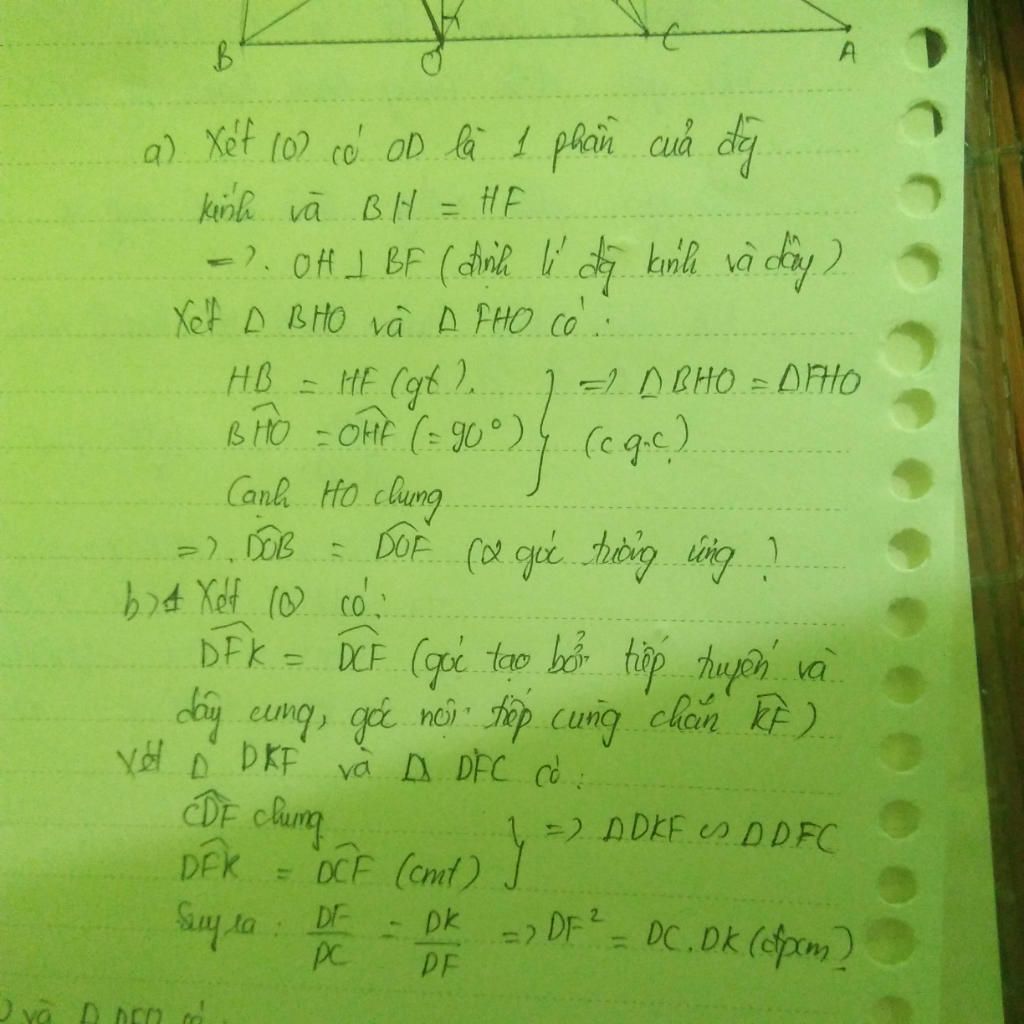 K
B O C A
a) Xét (O) có OD là 1 phần của đg̀
kính và BH = HF
=> OH ⊥ BF (định lí đg̀ kính và dây)
Xét Δ BHO và Δ FHO có:
HB = HF (gt).
=> Δ BHO = ΔFHO
\widehat{BHO} = \widehat{OHF} (= 90°)
(c.g.c)
Cạnh HO chung
=> \widehat{DOB} = \widehat{DOF} (2 góc tương ứng)
b) Xét (O) có:
\widehat{DFK} = \widehat{DCF} (góc tạo bởi tiếp tuyến và
dây cung, góc nội tiếp cùng chắn \widehat{KF})
Xét Δ DKF và Δ DFC có:
\widehat{CDF} chung
=> Δ DKF ∽ Δ DFC
\widehat{DFK} = \widehat{DCF} (cmt)
Suy ra: DF/DC = DK/DF => DF² = DC.DK (đpcm)
và Δ DFO có: